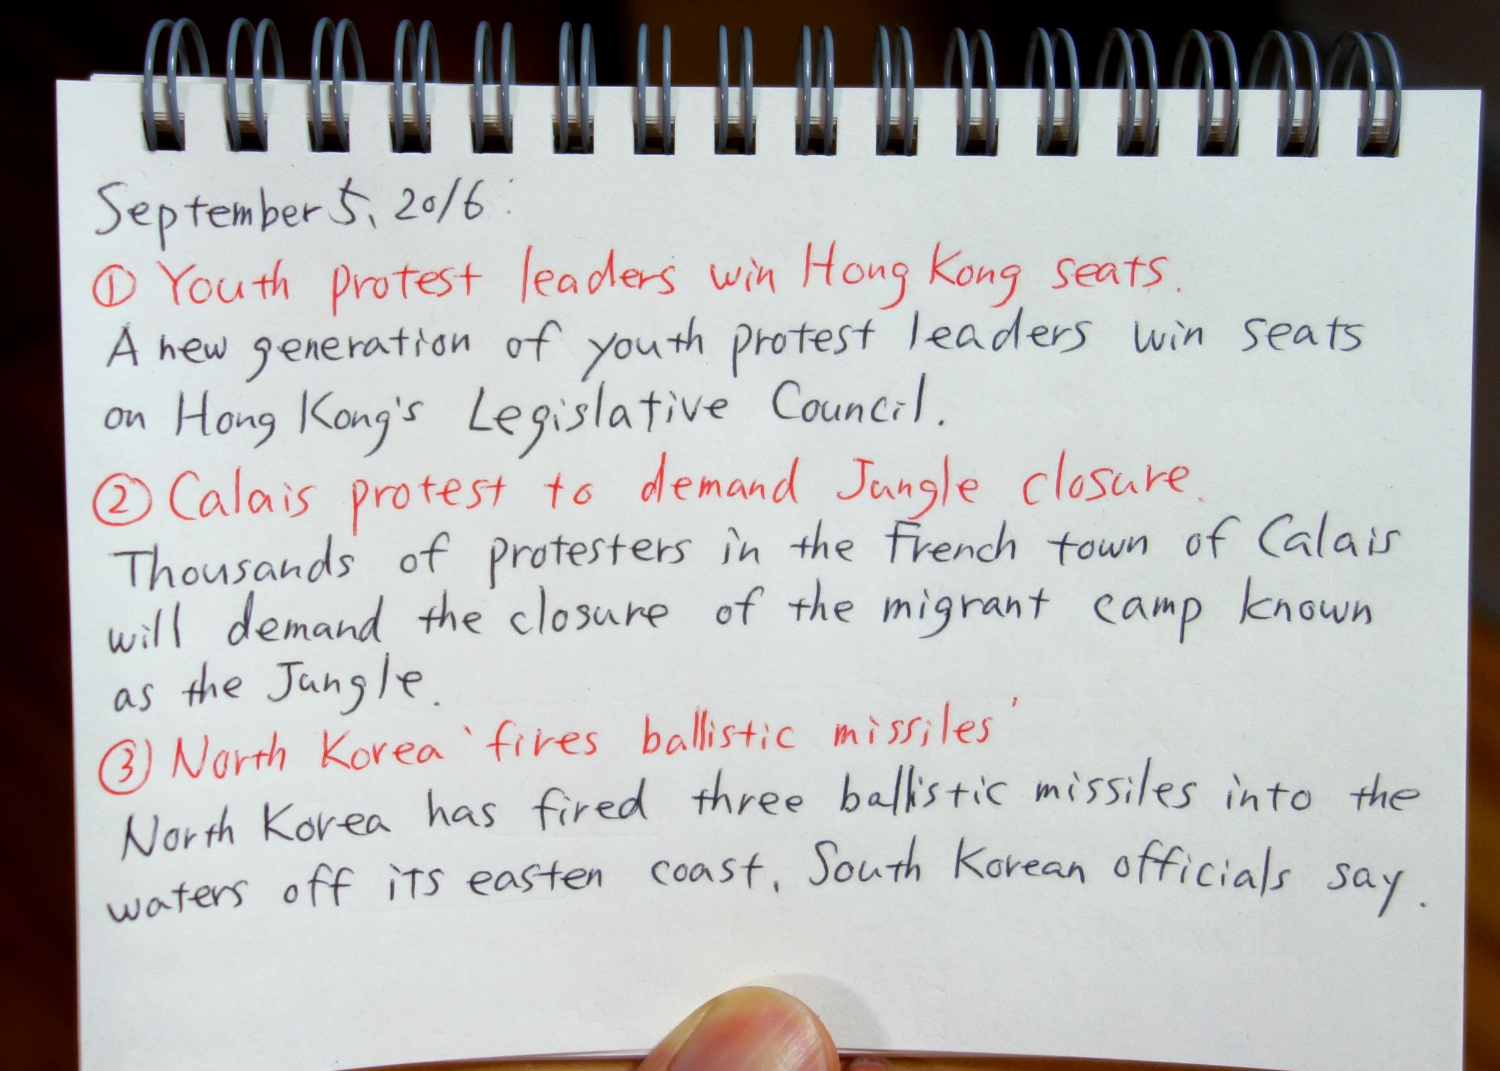 September 5, 2016:
① Youth protest leaders win Hong Kong seats.
A new generation of youth protest leaders win seats
on Hong Kong's Legislative Council.
② Calais protest to demand Jungle closure.
Thousands of protesters in the French town of Calais
will demand the closure of the migrant camp known
as the Jungle.
③ North Korea 'fires ballistic missiles'
North Korea has fired three ballistic missiles into the
waters off its easten coast, South Korean officials say.